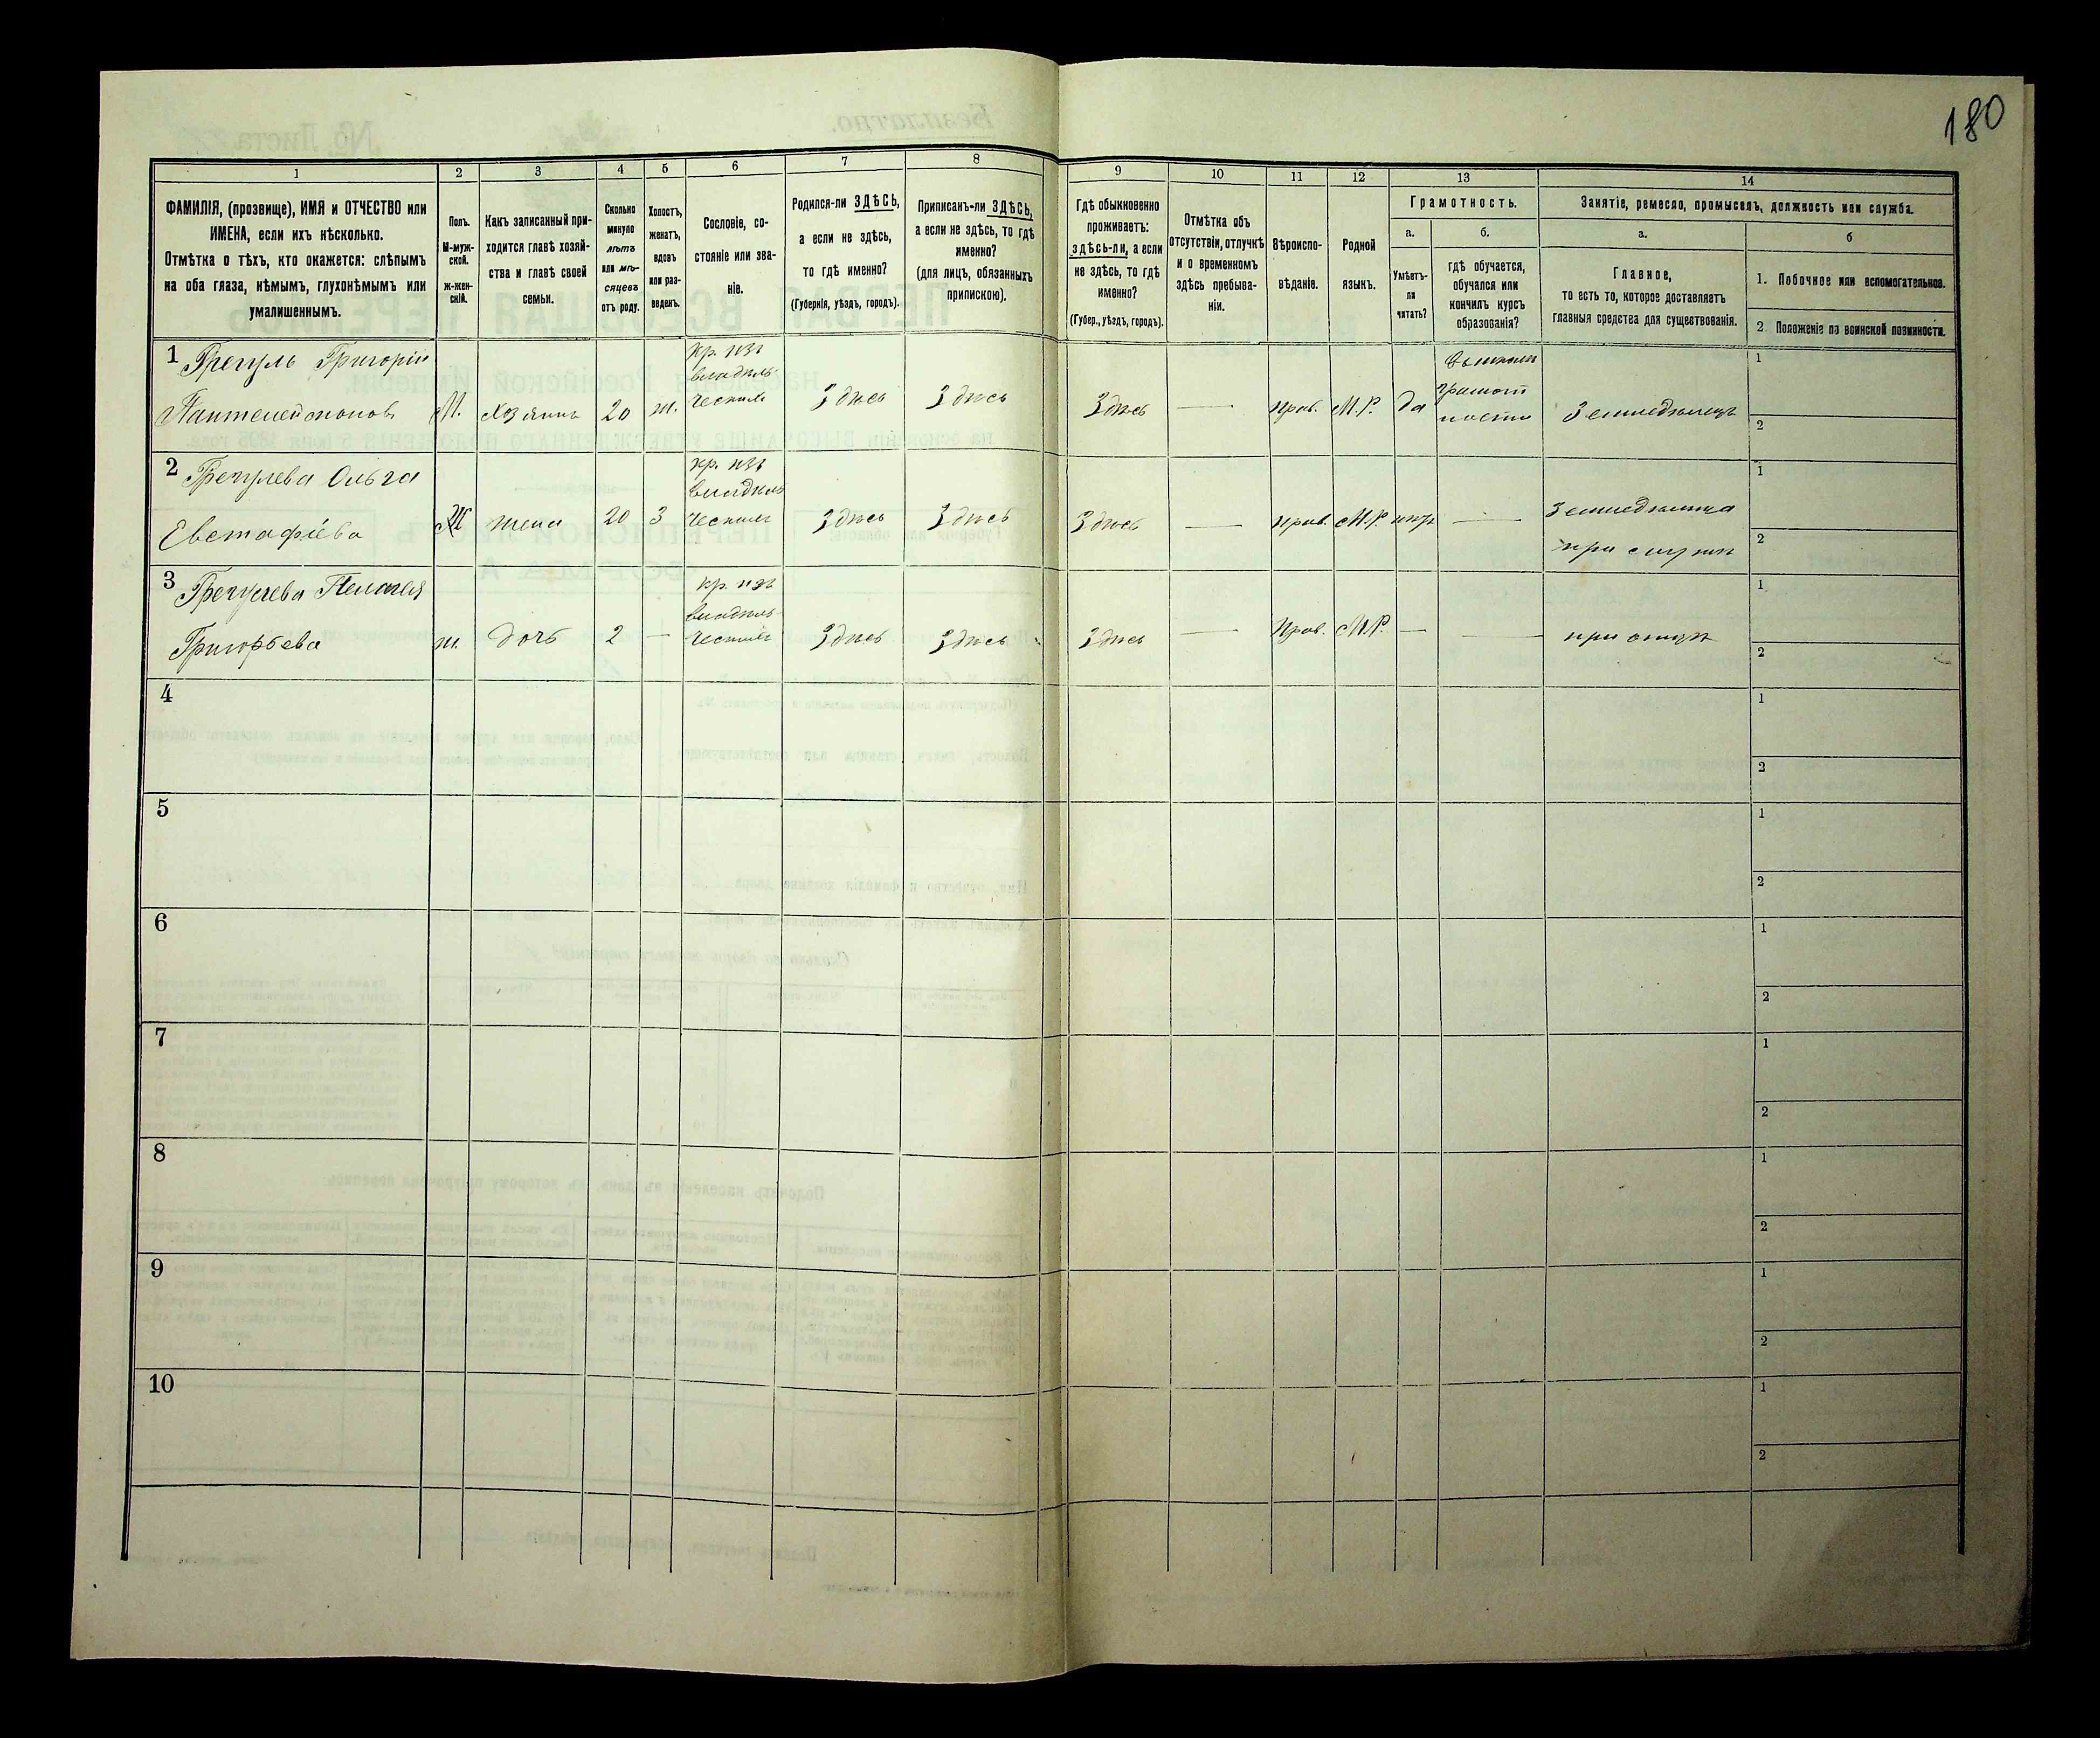 180
1
2
3
4
5
6
7
8
9
10
11
12
13
14
ФАМИЛІЯ, (прозвище), ИМЯ и ОТЧЕСТВО или
ИМЕНА, если ихъ нѣсколько.
Отмѣтка о тѣхъ, кто окажется: слѣпымъ
на оба глаза, нѣмымъ, глухонѣмымъ или
умалишеннымъ.
Полъ.
М-муж-
ской.
ж-жен-
скій.
Какъ записанный при-
ходится главѣ хозяй-
ства и главѣ своей
семьи.
Сколько
минуло
лѣтъ
или мѣ-
сяцевъ
отъ роду.
Холостъ,
женатъ,
вдовъ
или раз-
веденъ.
Сословіе, со-
стояніе или зва-
ніе.
Родился-ли ЗДѢСЬ,
а если не здѣсь,
то гдѣ именно?
(Губернія, уѣздъ, городъ).
Приписанъ-ли ЗДѢСЬ,
а если не здѣсь, то гдѣ
именно?
(для лицъ, обязанныхъ
припискою).
Гдѣ обыкновенно
проживаетъ:
здѣсь-ли, а если
не здѣсь, то гдѣ
именно?
(Губер., уѣздъ, городъ).
Отмѣтка объ
отсутствіи, отлучкѣ
и о временномъ
здѣсь пребыва-
ніи.
Вѣроиспо-
вѣданіе.
Родной
языкъ.
Грамотность.
а.
Умѣетъ-
ли
читать?
б.
гдѣ обучается,
обучался или
кончилъ курсъ
образованія?
Занятіе, ремесло, промыселъ, должность или служба.
а.
Главное,
то есть то, которое доставляетъ
главныя средства для существованія.
б
1. Побочное или вспомогательное.
2. Положеніе по воинской повинности.
1 Григорій
Пантелеймоновъ М. хозяинъ 20 ж. кр. изъ владѣль- ческихъ Здѣсь Здѣсь Здѣсь — прав. М.Р. да грамот ности Земледѣлецъ 1
2
2 Ольга
Евстафіева Ж жена 20 З кр. изъ владѣль ческихъ Здѣсь Здѣсь Здѣсь — прав. М.Р. — при 1
2
3 Пелагея
Григорьева ж. дочь 2 — кр. изъ владѣль- ческихъ Здѣсь Здѣсь Здѣсь — Прав. М.Р. — — при отцѣ 1
2
4 1
2
5 1
2
6 1
2
7 1
2
8 1
2
9 1
2
10 1
2